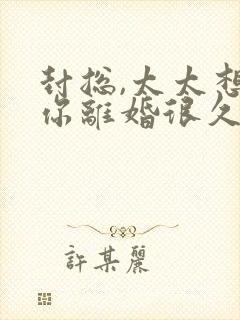 封总,太太想
你離婚很久
許某麗